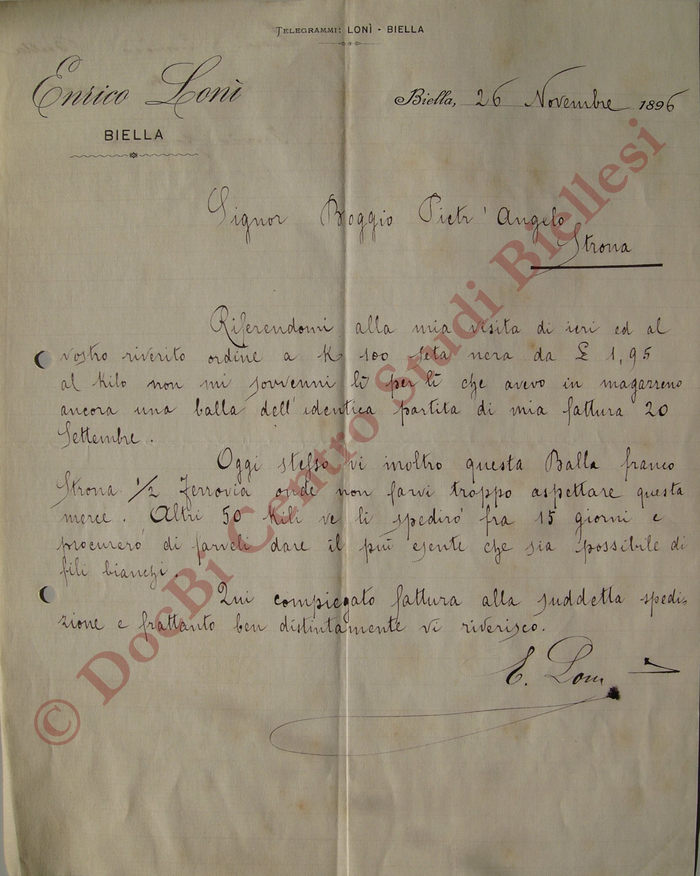 TELEGRAMMI: LONÌ - BIELLA
Enrico Lonì
BIELLA
Biella, 26 Novembre 1896
Signor Boggio Pietr' Angelo
Strona
Riferendomi alla mia visita di ieri ed al
vostro riverito ordine a K 100 seta nera da £ 1,95
al kilo non mi sovvenni lì per lì che avevo in magazzeno
ancora una balla dell'identica partita di mia fattura 20
Settembre.
Oggi stesso vi inoltro questa Balla franco
Strona 1/2 Ferrovia onde non farvi troppo aspettare questa
merce. Altri 50 kili ve li spedirò fra 15 giorni e
procurerò di farveli dare il più esente che sia possibile di
fili bianchi.
Qui compiegato fattura alla suddetta spedi-
zione e frattanto ben distintamente vi riverisco.
E. Loni
© DocBi Centro Studi Biellesi